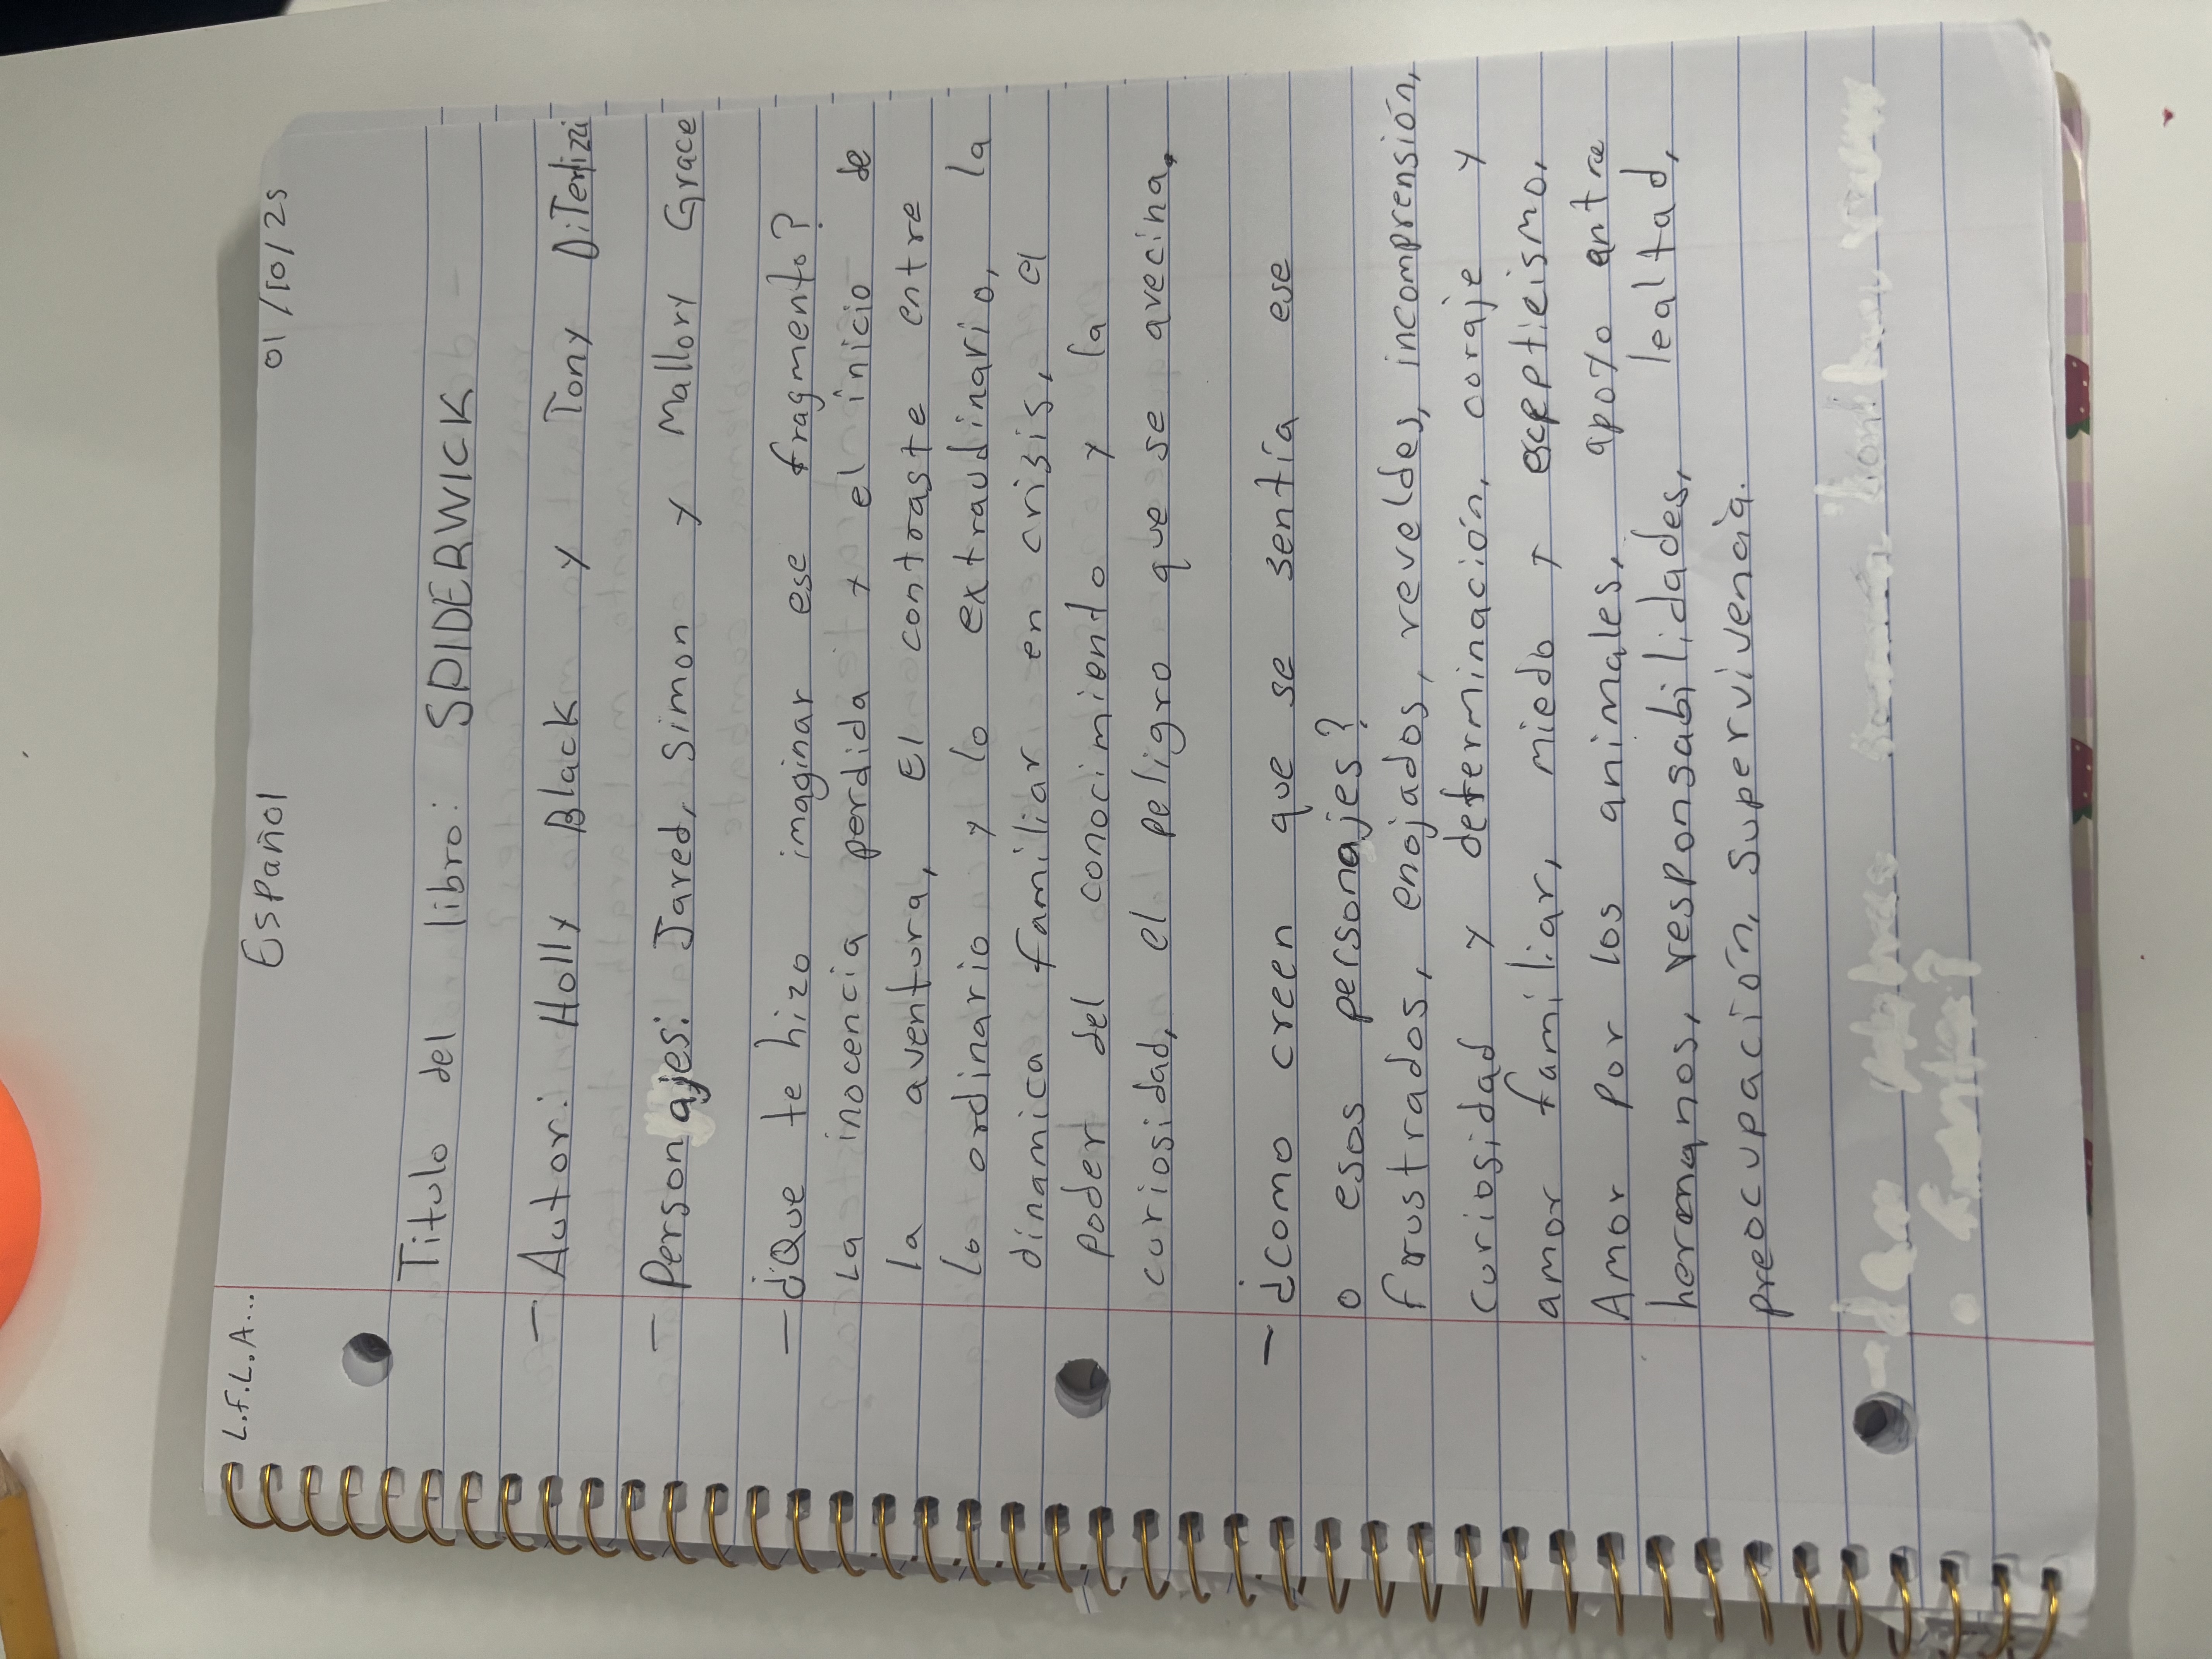 L.F.L.A... Español 01/10/25
Titulo del libro: SPIDERWICK
- Autor: Holly Black y Tony DiTerlizzi
- Personajes: Jared, Simon y Mallory Grace
- ¿Que te hizo imaginar ese fragmento?
La inocencia perdida y el inicio de
la aventura, El contraste entre
lo ordinario y lo extraudinario, la
dinamica familiar en crisis, el
poder del conocimiento y la
curiosidad, el peligro que se avecina,
- ¿como creen que se sentía ese
o esos personajes?
frustrados, enojados, reveldes, incomprensión,
curiosidad y determinación, coraje y
amor familiar, miedo y escepticismo,
Amor por los animales, apoyo entre
hermanos, responsabilidades, lealtad,
preocupación, supervivencia.